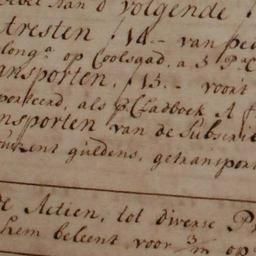 volgende
tresten, 14.- van
long:ª op Coolsgad, a 5 P:r C:
ansporten, 15.- voort
porteerd, als p:r Cladboek A f
nsporten van de Subscrib
urent guldens, getransport
de Actien, tot diverse P
hem beleent voor 3/m op